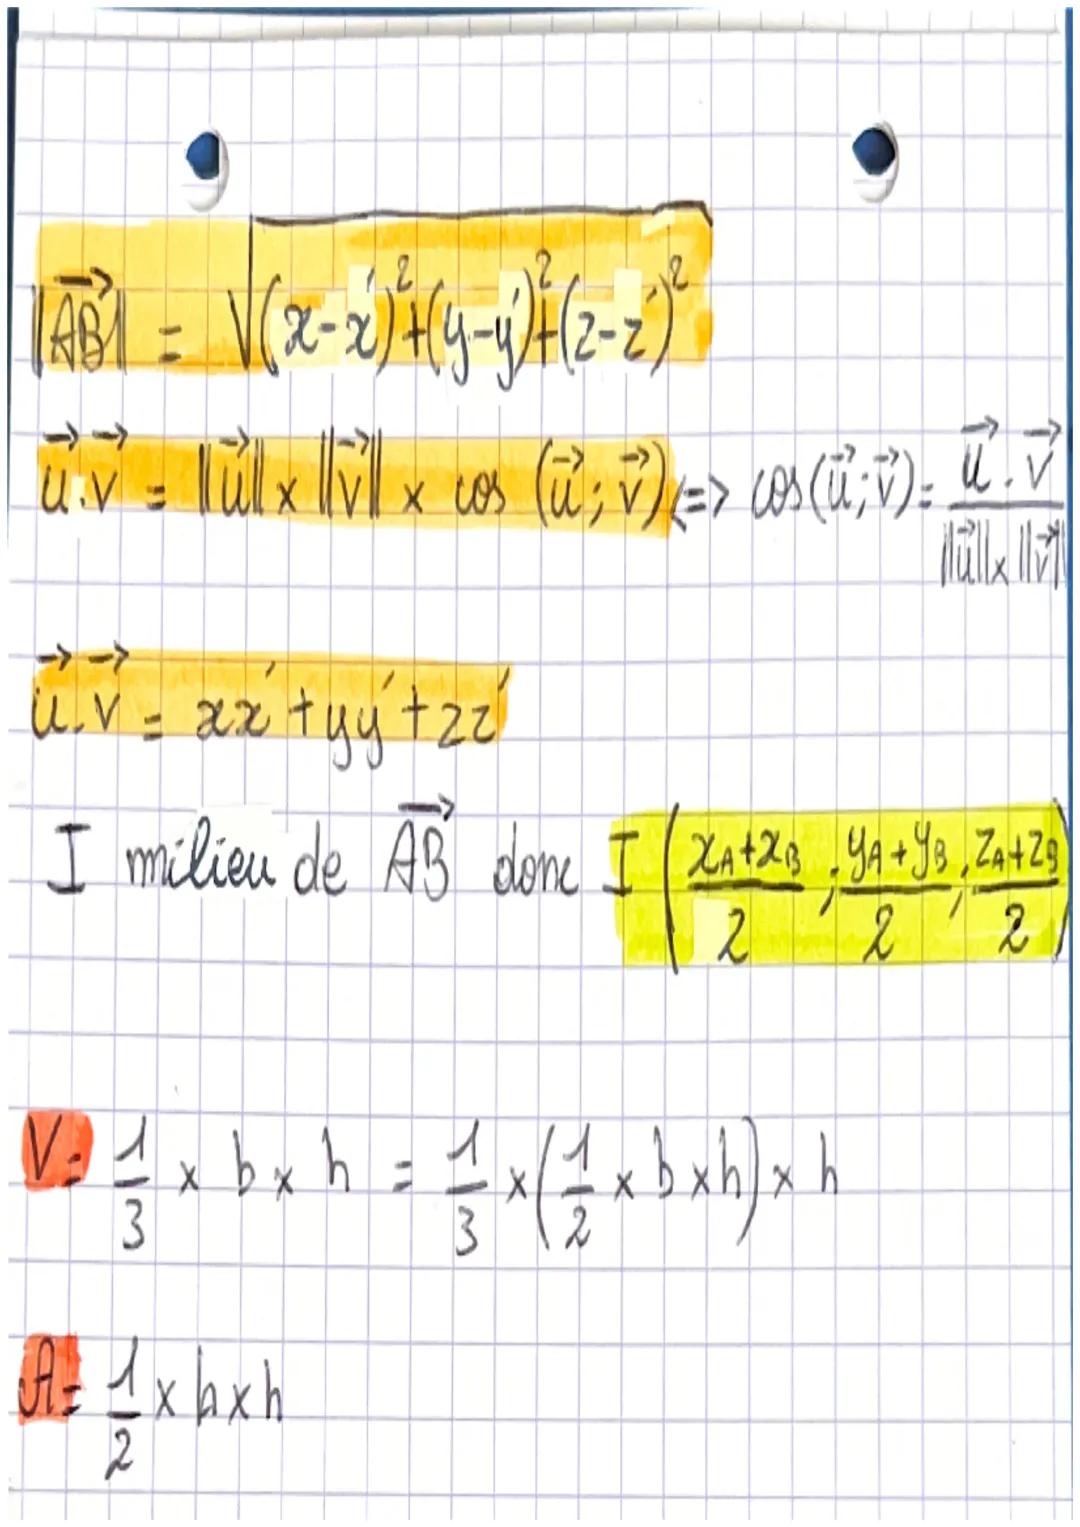 ||AB→|| = √((x-x')²+(y-y')²+(z-z')²)
u→.v→ = ||u→|| × ||v→|| × cos (u→; v→) <=> cos(u→; v→) = u→.v→ / ||u→|| × ||v→||
u→.v→ = xx' + yy' + zz'
I milieu de AB→ donc I ((xA+xB)/2 ; (yA+yB)/2 ; (zA+zB)/2)
V= 1/3 × b × h = 1/3 × (1/2 × b × h) × h
A= 1/2 × b × h